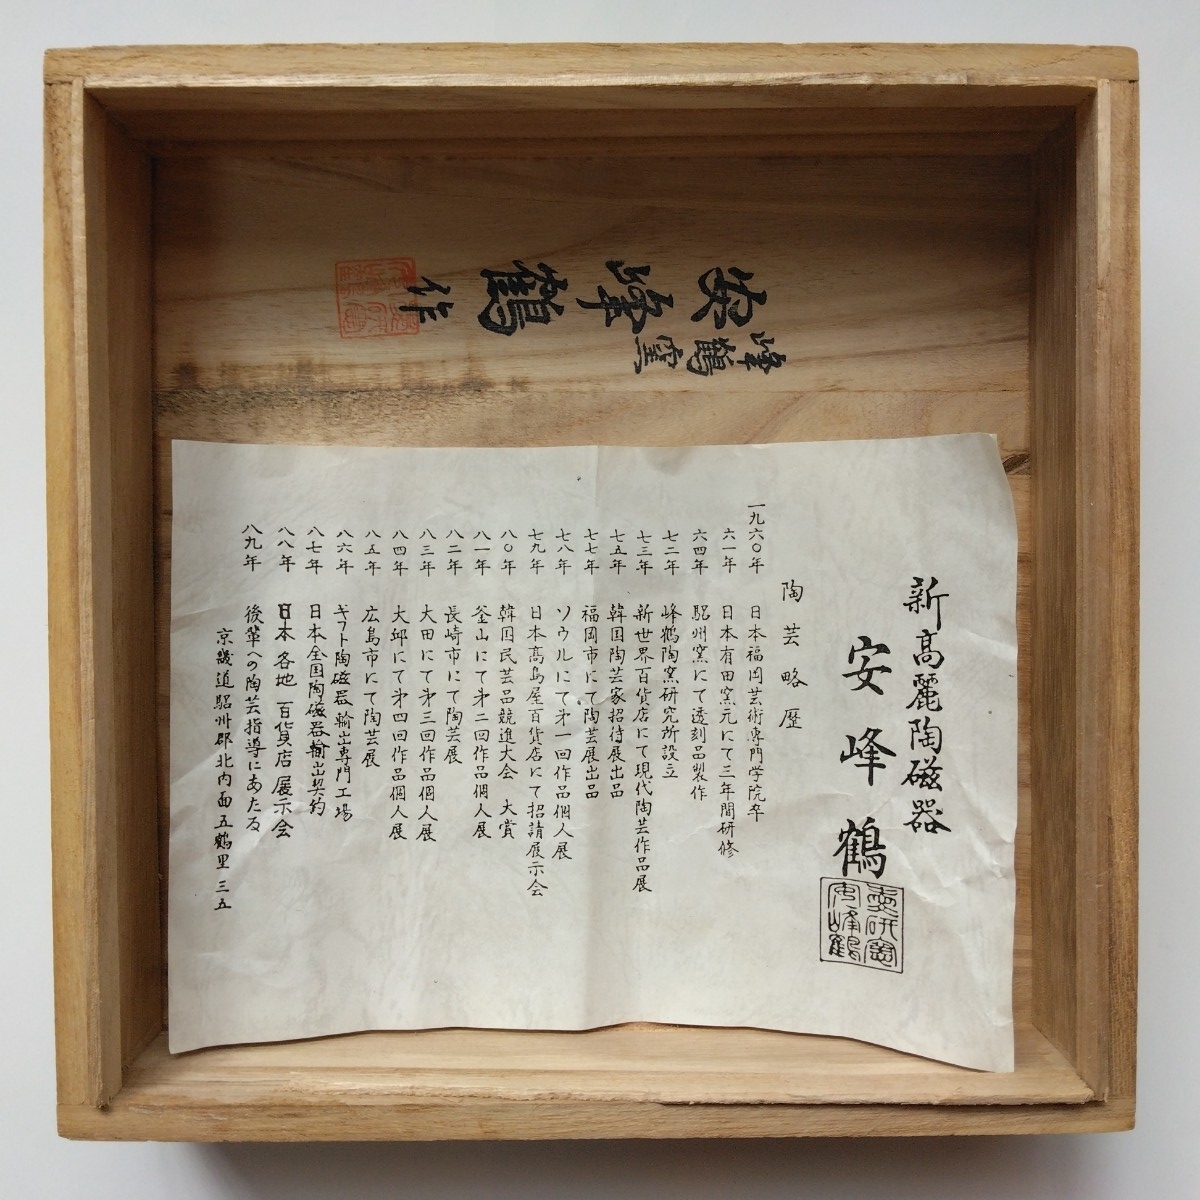 峰鶴窯
安峰鶴作
新高麗陶磁器
安峰鶴
安峰鶴
陶芸略歴
一九六〇年 日本福岡芸術専門学院卒
六一年 日本有田窯元にて三年間研修
六四年 駋州窯にて透刻品製作
七二年 峰鶴陶窯研究所設立
七三年 新世界百貨店にて現代陶芸作品展
七五年 韓国陶芸家招待展出品
七七年 福岡市にて陶芸展出品
七八年 ソウルにて㐧一回作品個人展
七九年 日本高島屋百貨店にて招請展示会
八〇年 韓国民芸品競進大会 大賞
八一年 釜山にて㐧二回作品個人展
八二年 長崎市にて陶芸展
八三年 大田にて㐧三回作品個人展
八四年 大邱にて㐧四回作品個人展
八五年 広島市にて陶芸展
八六年 ギフト陶磁器輸出専門工場
八七年 日本全国陶磁器輸出契約
八八年 日本各地百貨店展示会
八九年 後輩への陶芸指導にあたる
京畿道駋州郡北内面五鶴里三五